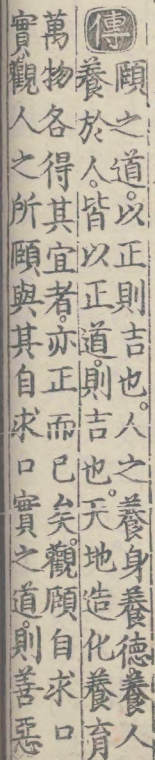 傳
頤之道。以正則吉也。人之養身養德。養人
養於人。皆以正道。則吉也。天地造化。養育
萬物。各得其宜者。亦正而已矣。觀頤自求口
實。觀人之所頤。與其自求口實之道。則善惡